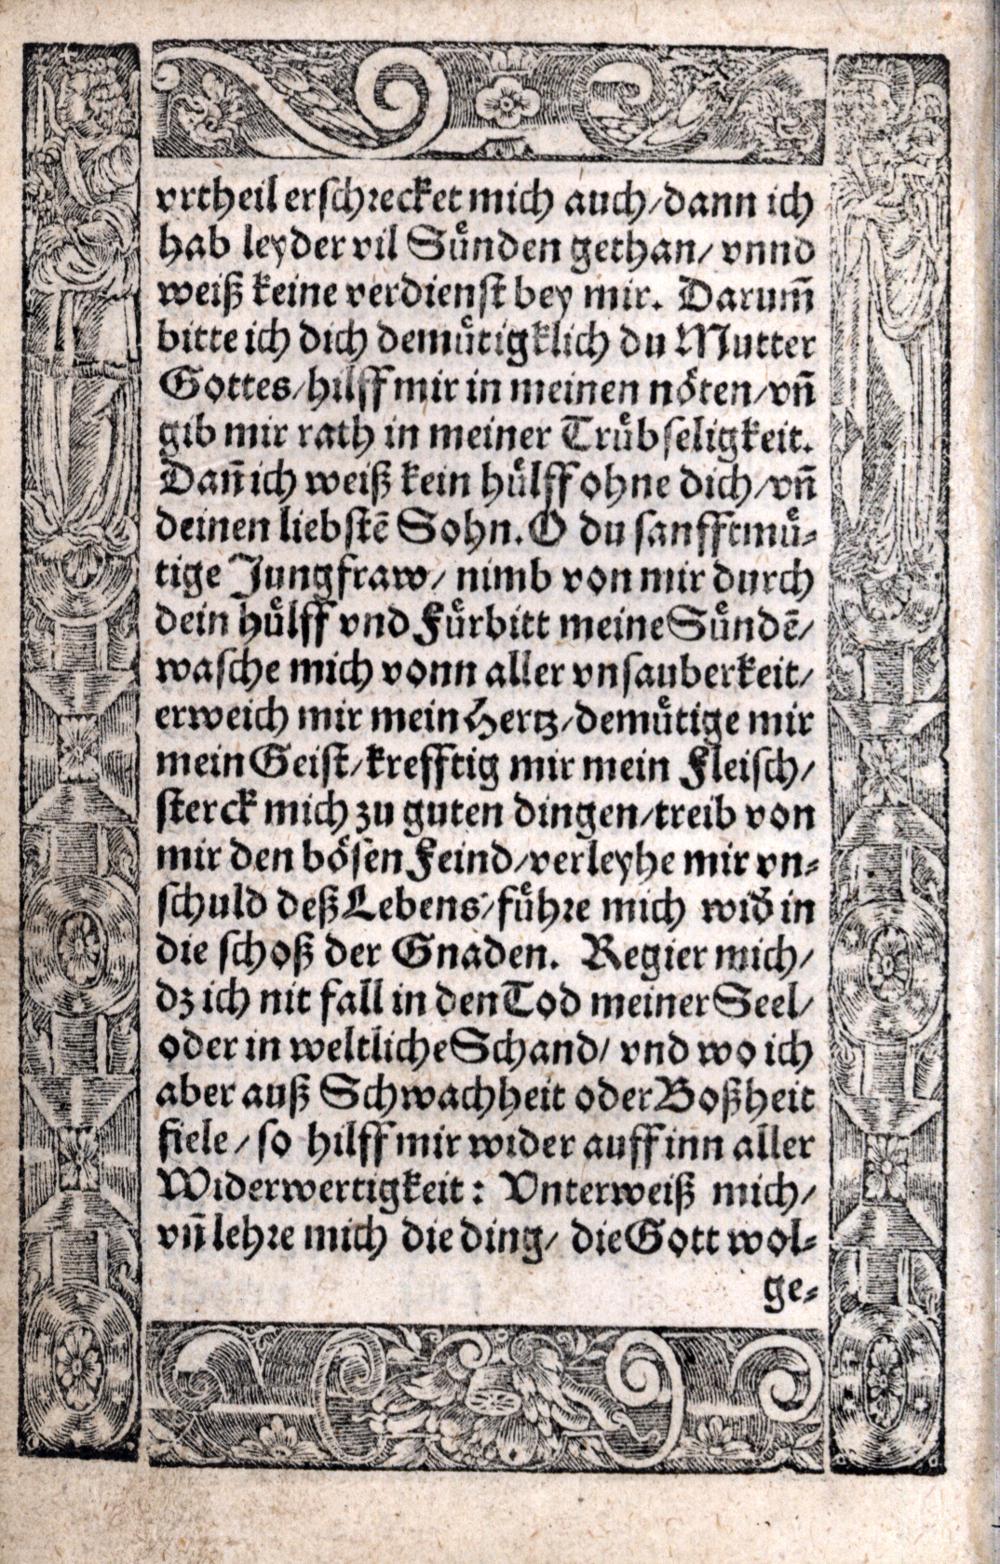 vrtheil erschrecket mich auch/dann ich
hab leyder vil Sůnden gethan/ vnnd
weiß keine verdienst bey mir. Darum̃
bitte ich dich demůtigklich du Mutter
Gottes/hilff mir in meinen nöten/vñ
gib mir rath in meiner Trůbseligkeit.
Dañ ich weiß kein hůlff ohne dich/vñ
deinen liebstẽ Sohn. O du sanfftmů-
tige Jungfraw/ nimb von mir durch
dein hůlff vnd Fůrbitt meine Sůndẽ/
wasche mich vonn aller vnsauberkeit/
erweich mir mein Hertz/demůtige mir
mein Geist/krefftig mir mein Fleisch/
sterck mich zu guten dingen/treib von
mir den bösen Feind/verleyhe mir vn-
schuld deß Lebens/fůhre mich wid̃ in
die schoß der Gnaden. Regier mich/
dz ich nit fall in den Tod meiner Seel/
oder in weltliche Schand/ vnd wo ich
aber auß Schwachheit oder Boßheit
fiele/ so hilff mir wider auff inn aller
Widerwertigkeit: Vnterweiß mich/
vñ lehre mich die ding/ die Gott wol-
ge-